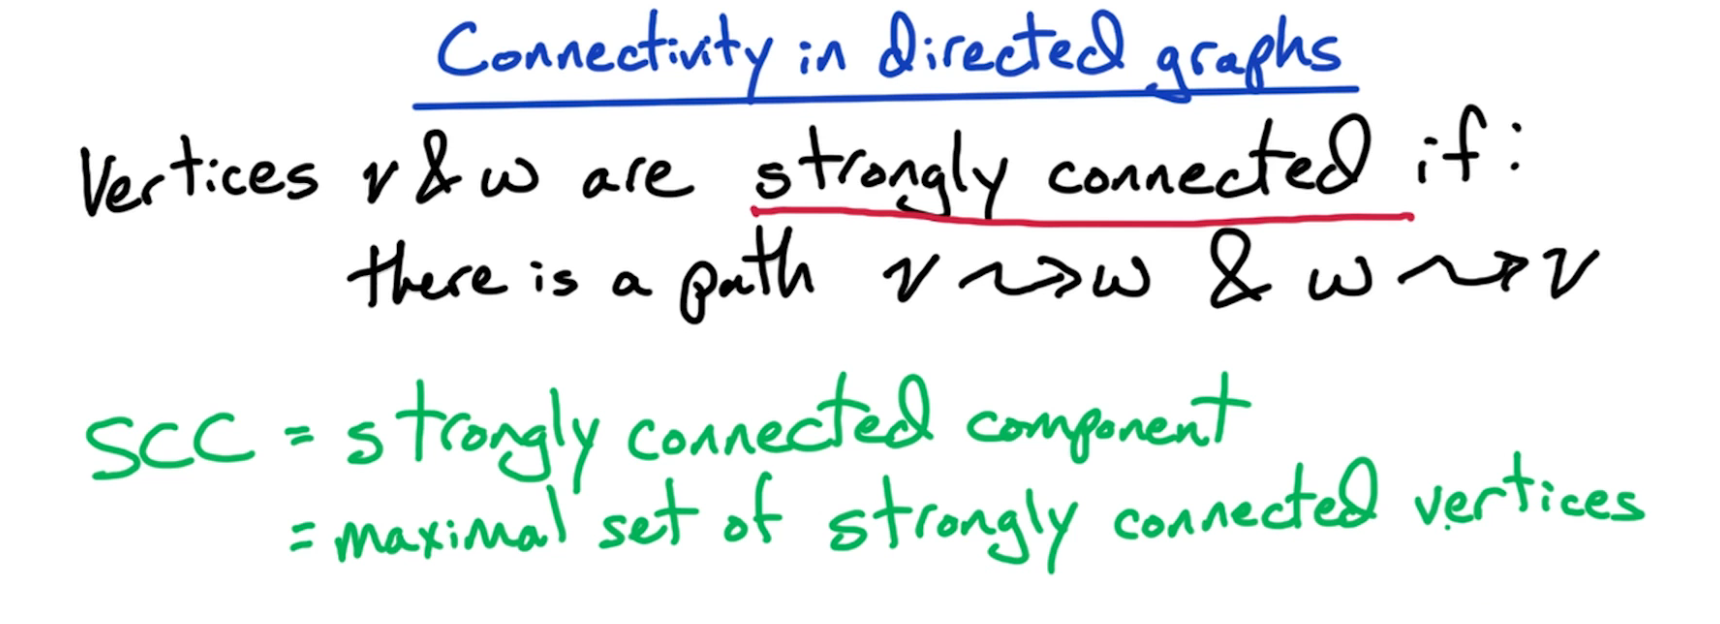 Connectivity in directed graphs
Vertices v & w are strongly connected if:
there is a path v ⇝ w & w ⇝ v
SCC = strongly connected component
= maximal set of strongly connected vertices